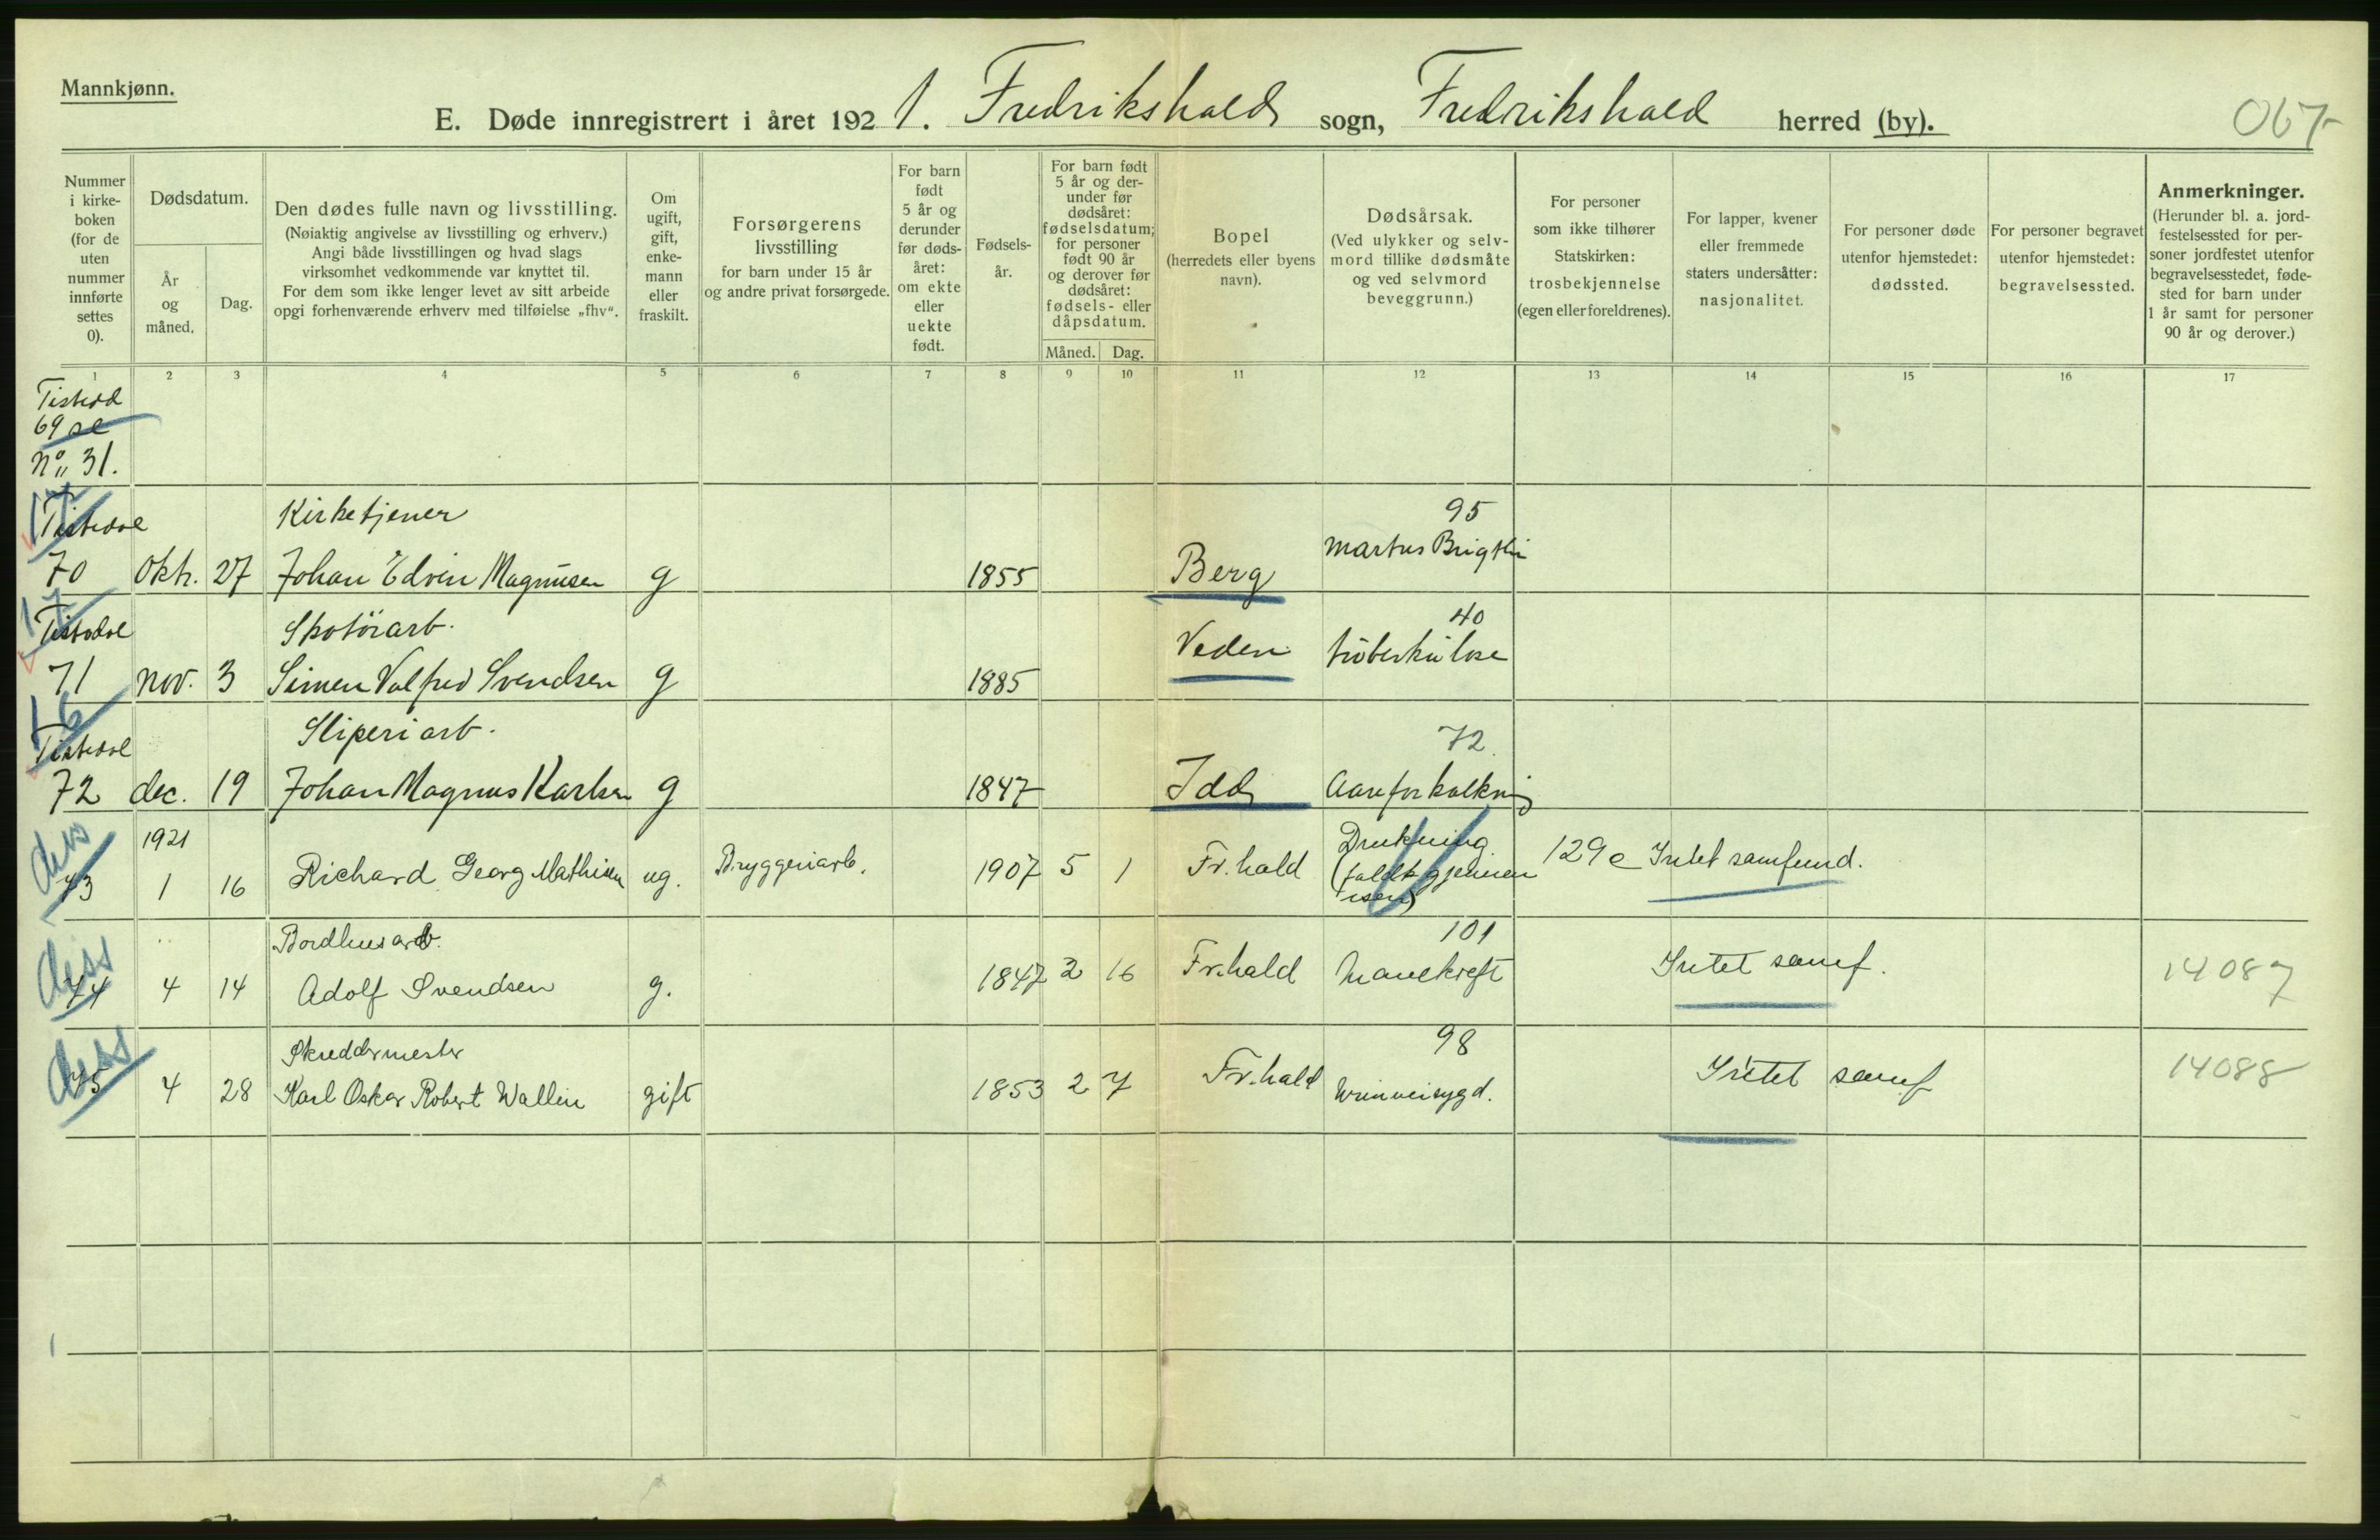 Mannkjønn.
E. Døde innregistrert i året 1921. Fredrikshald sogn, Fredrikshald herred (by).
067
Nummer i kirke-boken (for de uten nummer innførte settes 0).
Dødsdatum.
År og måned.
Dag.
Den dødes fulle navn og livsstilling.
(Nøiaktig angivelse av livsstilling og erhverv.)
Angi både livsstillingen og hvad slags
virksomhet vedkommende var knyttet til.
For dem som ikke lenger levet av sitt arbeide
opgi forhenværende erhverv med tilføielse „fhv“.
Om ugift, gift, enke-mann eller fraskilt.
Forsørgerens livsstilling
for barn under 15 år
og andre privat forsørgede.
For barn født 5 år og derunder før døds-året: om ekte eller uekte født.
Fødsels-år.
For barn født 5 år og der-under før dødsåret: fødselsdatum; for personer født 90 år og derover før dødsåret: fødsels- eller dåpsdatum.
Måned.
Dag.
Bopel
(herredets eller byens navn).
Dødsårsak.
(Ved ulykker og selv-mord tillike dødsmåte og ved selvmord beveggrunn.)
For personer som ikke tilhører Statskirken: trosbekjennelse (egen eller foreldrenes).
For lapper, kvener eller fremmede staters undersåtter: nasjonalitet.
For personer døde utenfor hjemstedet: dødssted.
For personer begravet utenfor hjemstedet: begravelsessted.
Anmerkninger.
(Herunder bl. a. jord-festelsessted for per-soner jordfestet utenfor begravelsesstedet, føde-sted for barn under 1 år samt for personer 90 år og derover.)
1 2 3 4 5 6 7 8 9 10 11 12 13 14 15 16 17
69 se
No 31.
Kirketjener 95
70 Okt. 27 Johan Edvin Magnusen g 1855 Berg
Skotöiarb. 40
71 Nov. 3 Simen Valfred Svendsen g 1885 Veden tüberkülose
Sliperiarb. 72
72 dec. 19 Johan Magnus Karlsen g 1847 Idd Aareforkalkning
1921
73 1 16 Richard Georg Mathisen ug. Bryggeriarb. 1907 5 1 Fr.hald Drukning (faldt gjennem isen) 129 e Intet samfund.
Bordhusarb. 101
74 4 14 Adolf Svendsen g. 1847 2 16 Fr.hald Mavekreft Intet samf. 14087
Skreddermester 98
75 4 28 Karl Oskar Robert Wallin gift 1853 2 7 Fr.hald Urinveisygd. Intet samf 14088